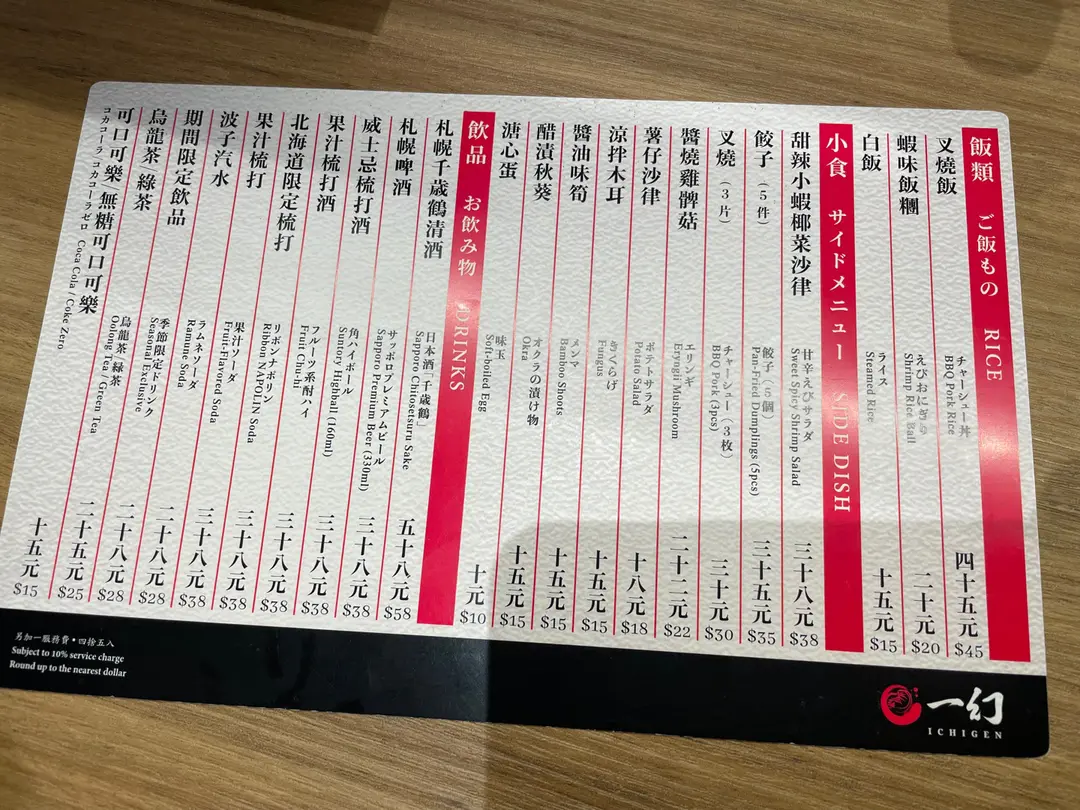 飯類 ご飯もの RICE
叉燒飯
チャーシュー丼
BBQ Pork Rice
四十五元
$45
蝦味飯糰
えびおにぎり
Shrimp Rice Ball
二十元
$20
白飯
ライス
Steamed Rice
十五元
$15
小食 サイドメニュー SIDE DISH
甜辣小蝦椰菜沙律
甘辛えびサラダ
Sweet Spicy Shrimp Salad
三十八元
$38
餃子（5件）
餃子（5個）
Pan-Fried Dumplings (5pcs)
三十五元
$35
叉燒（3片）
チャーシュー（3枚）
BBQ Pork (3pcs)
三十元
$30
醬燒雞髀菇
エリンギ
Eryngii Mushroom
二十二元
$22
薯仔沙律
ポテトサラダ
Potato Salad
十八元
$18
涼拌木耳
きくらげ
Fungus
十五元
$15
醬油味筍
メンマ
Bamboo Shoots
十五元
$15
醋漬秋葵
オクラの漬け物
Okra
十五元
$15
溏心蛋
味玉
Soft-boiled Egg
十元
$10
飲品 お飲み物 DRINKS
札幌千歳鶴清酒
日本酒「千歳鶴」
Sapporo Chitosetsuru Sake
五十八元
$58
札幌啤酒
サッポロプレミアムビール
Sapporo Premium Beer (330ml)
三十八元
$38
威士忌梳打酒
角ハイボール
Suntory Highball (160ml)
三十八元
$38
果汁梳打酒
フルーツ系酎ハイ
Fruit Chu-hi
三十八元
$38
北海道限定梳打
リボンナポリン
Ribbon NAPOLIN Soda
三十八元
$38
果汁梳打
果汁ソーダ
Fruit-Flavored Soda
三十八元
$38
波子汽水
ラムネソーダ
Ramune Soda
二十八元
$28
期間限定飲品
季節限定ドリンク
Seasonal Exclusive
二十八元
$28
烏龍茶/綠茶
烏龍茶/緑茶
Oolong Tea / Green Tea
二十五元
$25
可口可樂/無糖可口可樂
コカコーラ/コカコーラゼロ Coca Cola / Coke Zero
十五元
$15
另加一服務費•四捨五入
Subject to 10% service charge
Round up to the nearest dollar
一幻
ICHIGEN